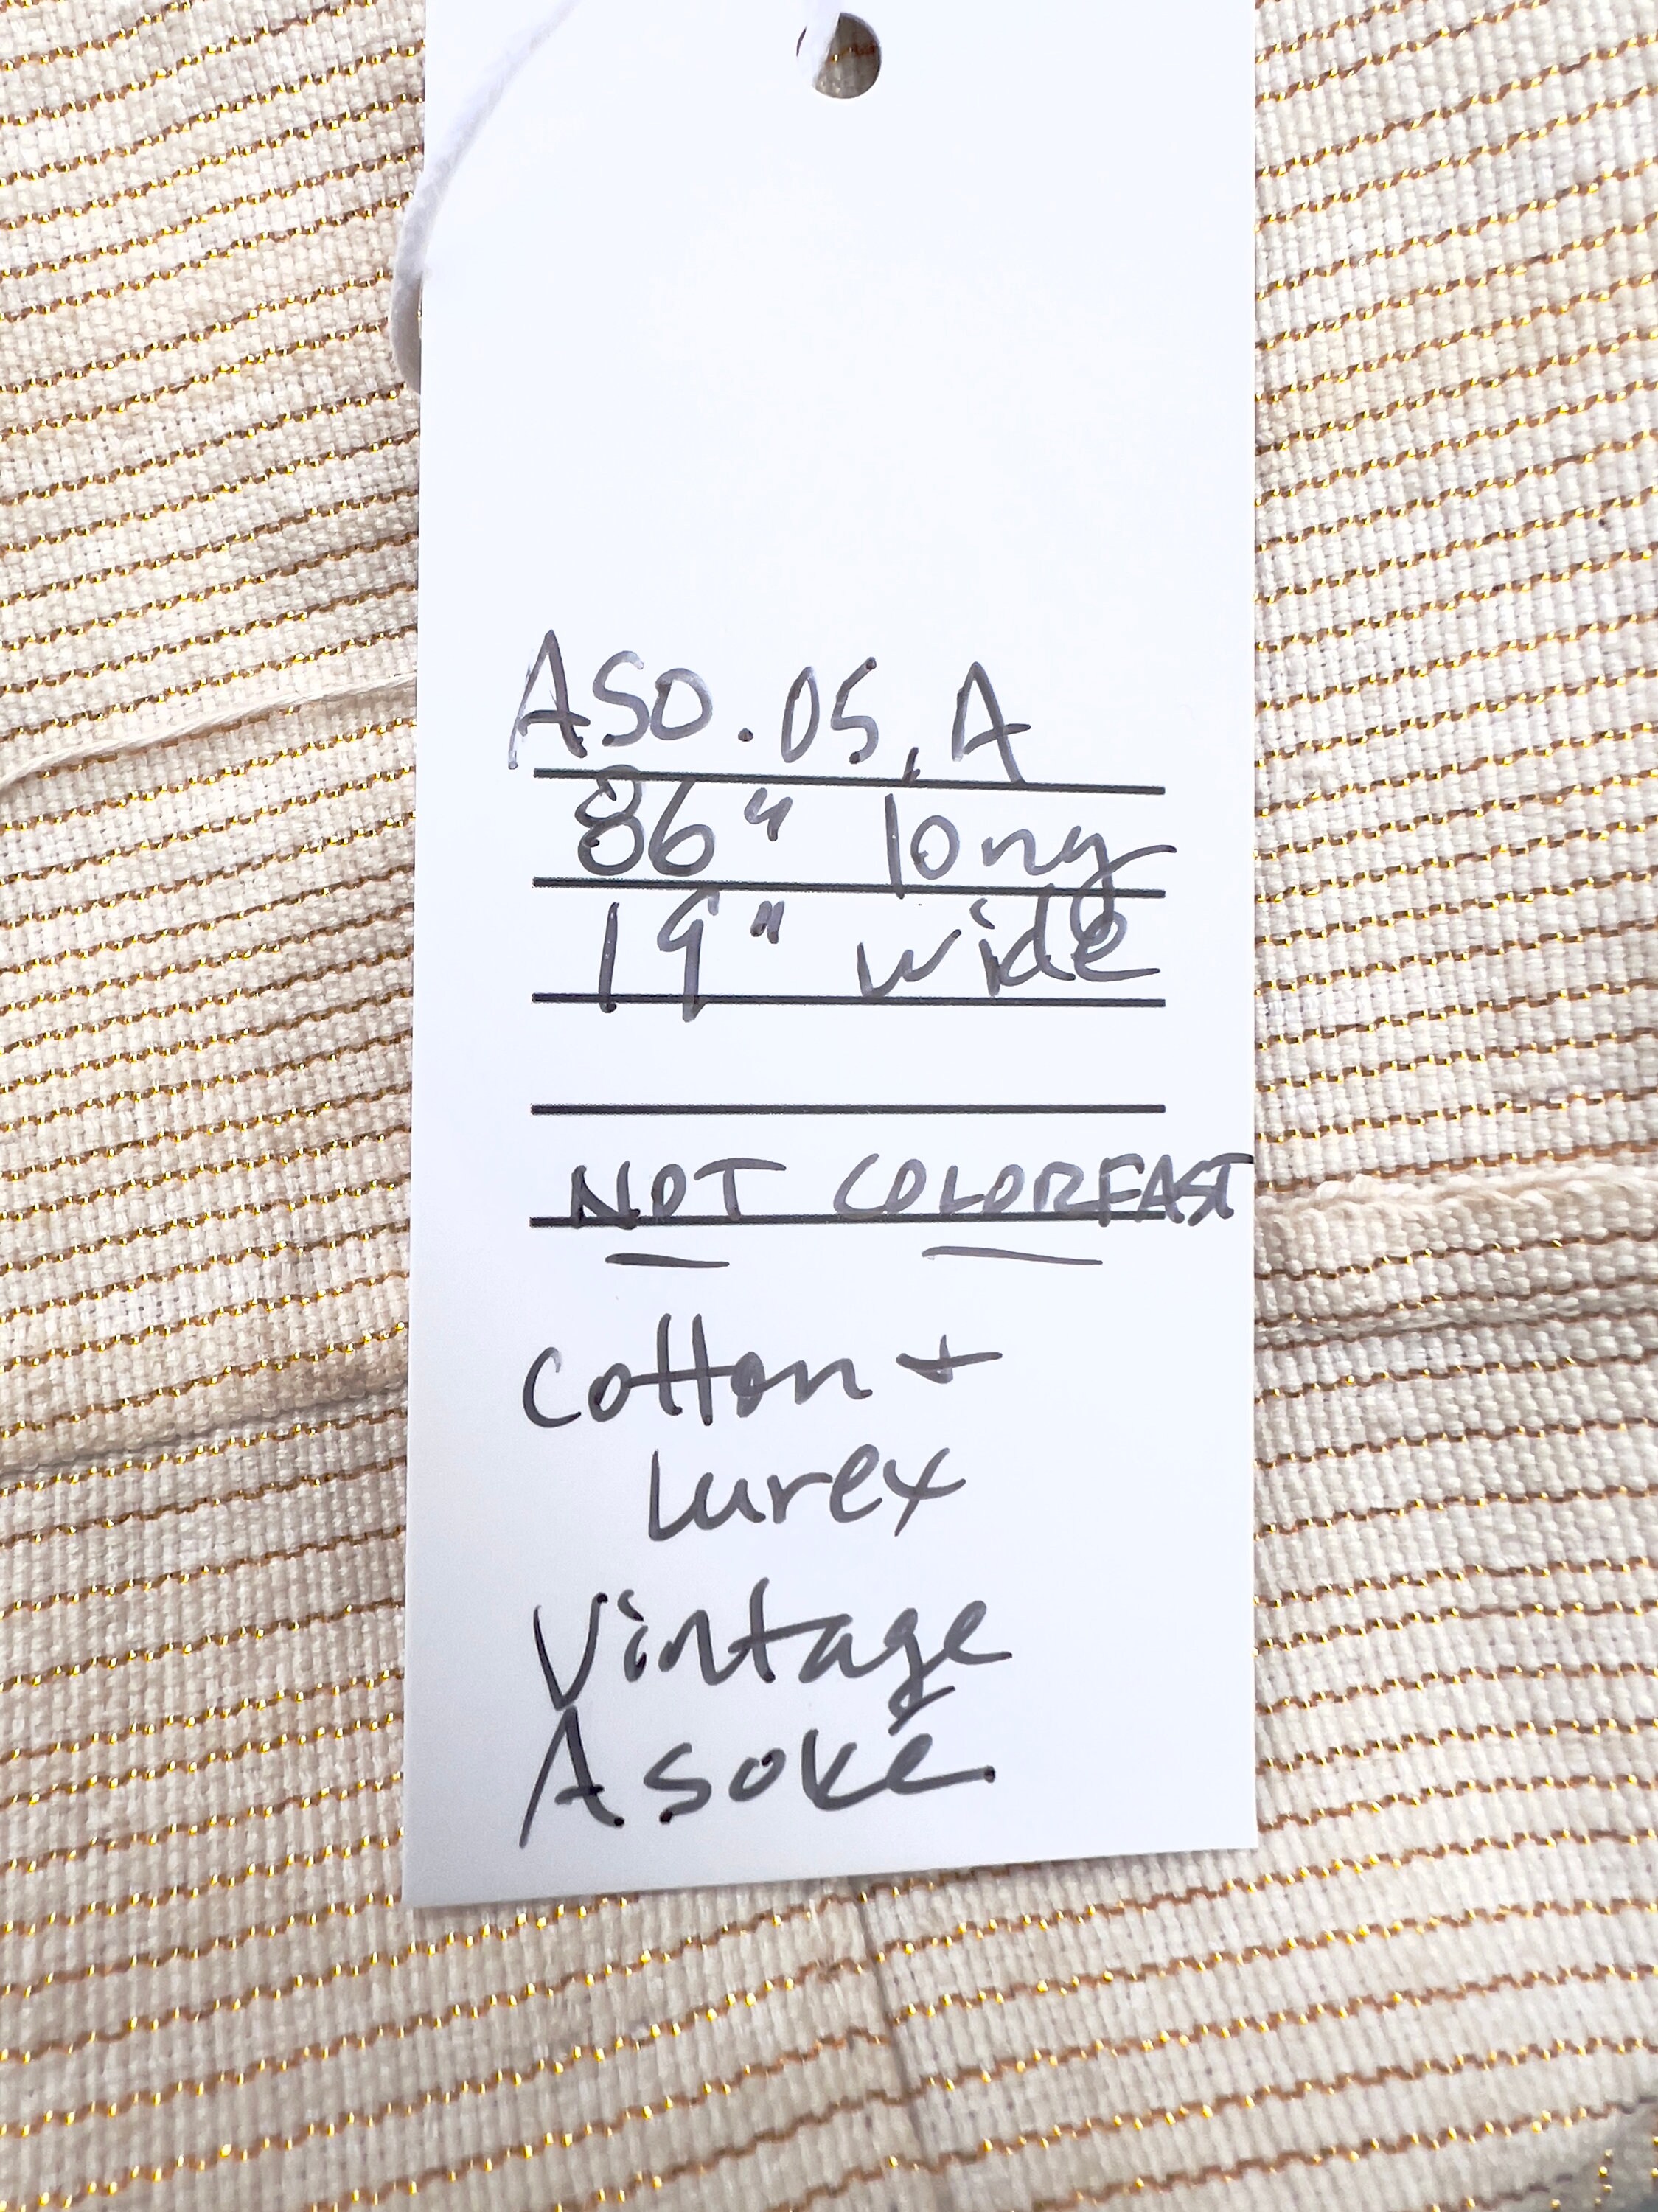 ASO.05.A
86" long
19" wide
NOT COLORFAST
Cotton +
Lurex
Vintage
Asoke